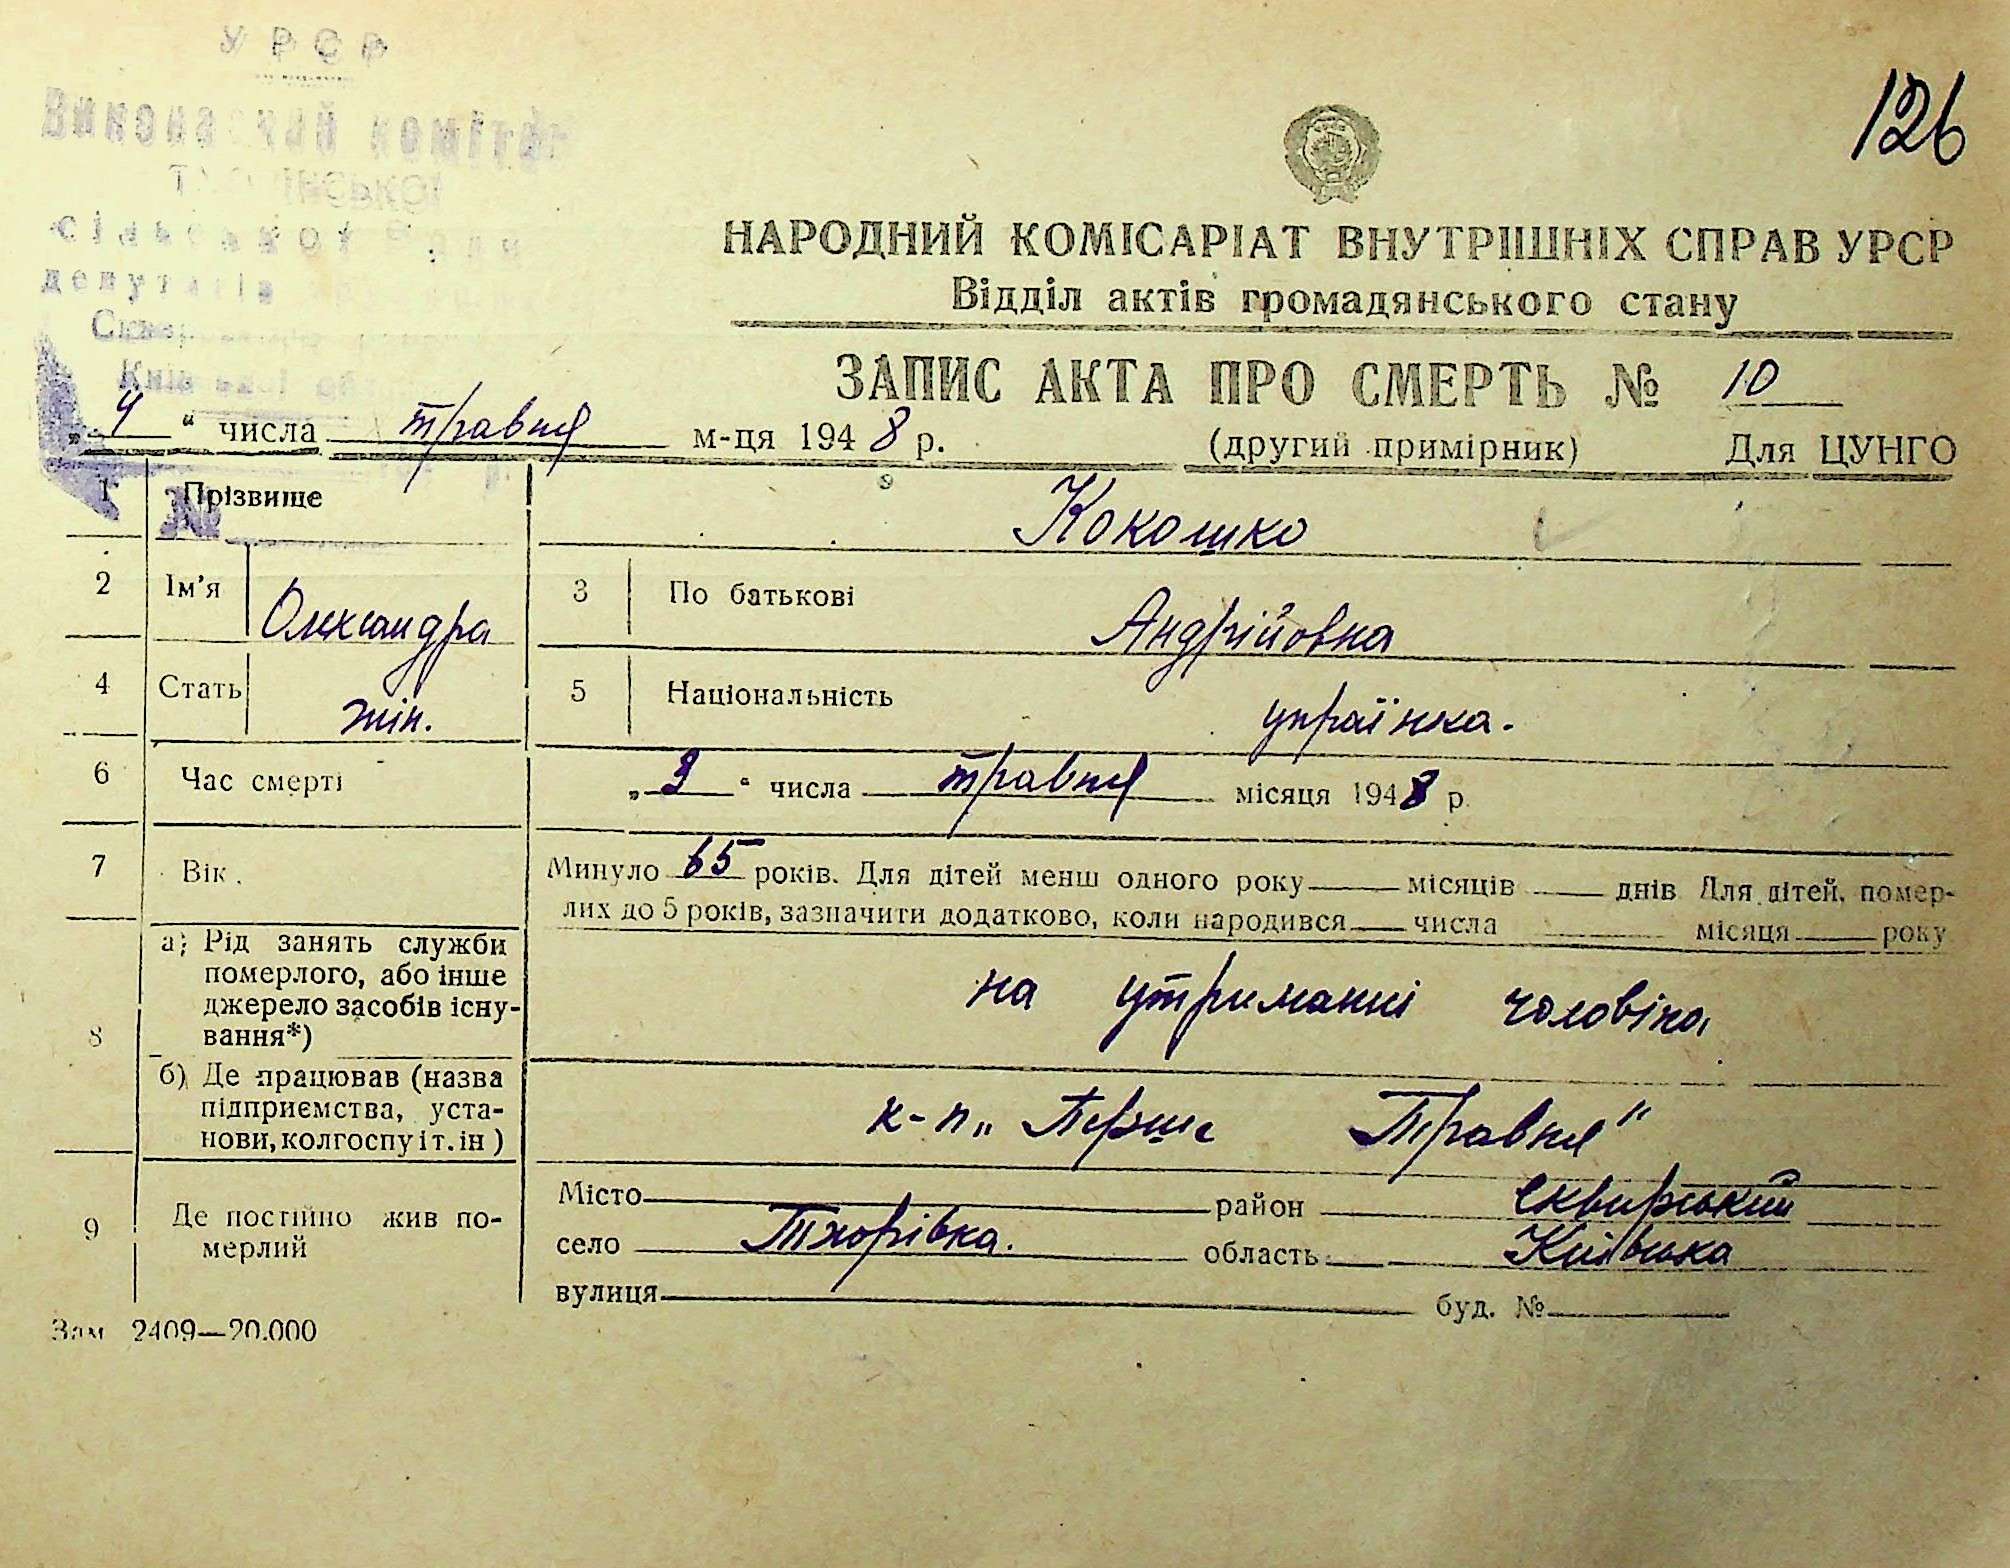 УРСР
126
НАРОДНИЙ КОМІСАРІАТ ВНУТРІШНІХ СПРАВ УРСР
Відділ актів громадянського стану
ЗАПИС АКТА ПРО СМЕРТЬ № 10
„4“ числа травня м-ця 1948 р. (другий примірник) Для ЦУНГО
1 Прізвище Кокошко
2 Ім’я Олександра 3 По батькові Андрійовна
4 Стать жін. 5 Національність українка.
6 Час смерті „3“ числа травня місяця 1948 р.
7 Вік. Минуло 65 років. Для дітей менш одного року місяців днів Для дітей, помер-
лих до 5 років, зазначити додатково, коли народився числа місяця року
8 а) Рід занять служби
померлого, або інше
джерело засобів існу-
вання*)
на утриманні чоловіка
б) Де працював (назва
підприємства, уста-
нови, колгоспу і т. ін)
к-п „Перше Травня“
9 Де постійно жив по-
мерлий
Місто район Сквирський
село Тхорівка. область Київська
вулиця буд. №
Зам 2409—20.000